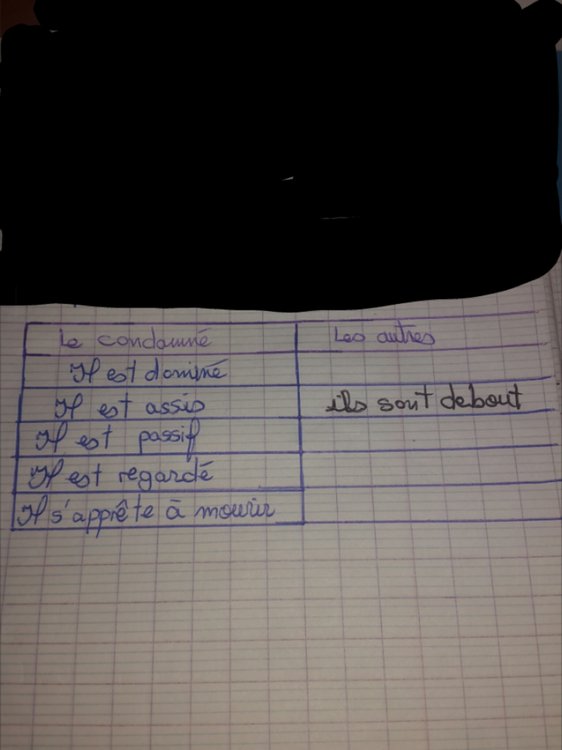 Le condamné Les autres
Il est dominé
Il est assis ils sont debout
Il est passif
Il est regardé
Il s'apprête à mourir